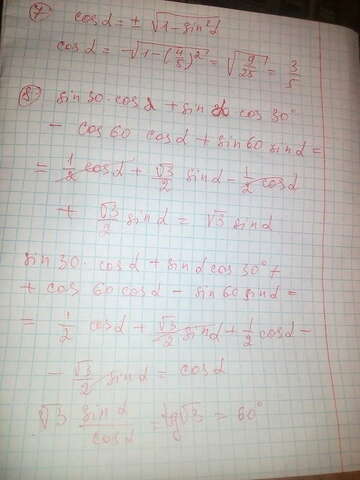 7) cos α = ± √(1 - sin² α)
cos α = √(1 - (4/5)²) = √(9/25) = 3/5
8) sin 30 · cos α + sin α cos 30°
- cos 60 cos α + sin 60 sin α =
= 1/2 cos α + √3/2 sin α - 1/2 cos α
+ √3/2 sin α = √3 sin α
sin 30 · cos α + sin α cos 30° +
+ cos 60 cos α - sin 60 sin α =
= 1/2 cos α + √3/2 sin α + 1/2 cos α -
- √3/2 sin α = cos α
√3 sin α / cos α = tg √3 = 60°